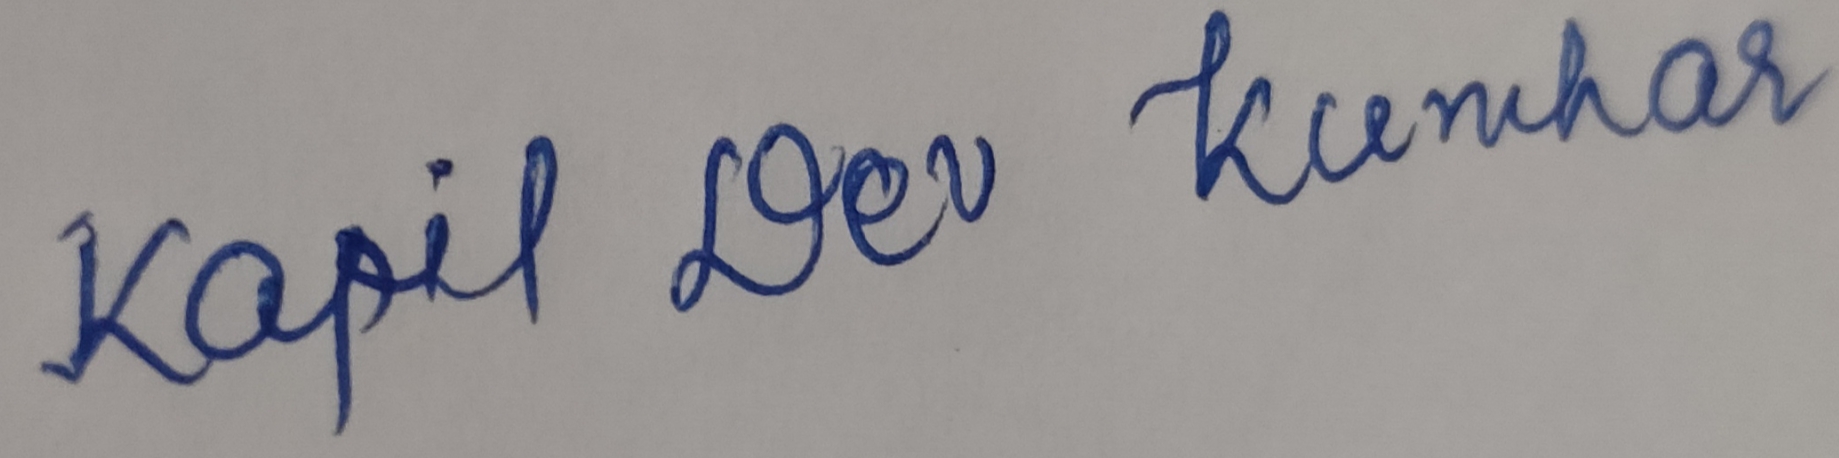 Kapil Dev Kumhar